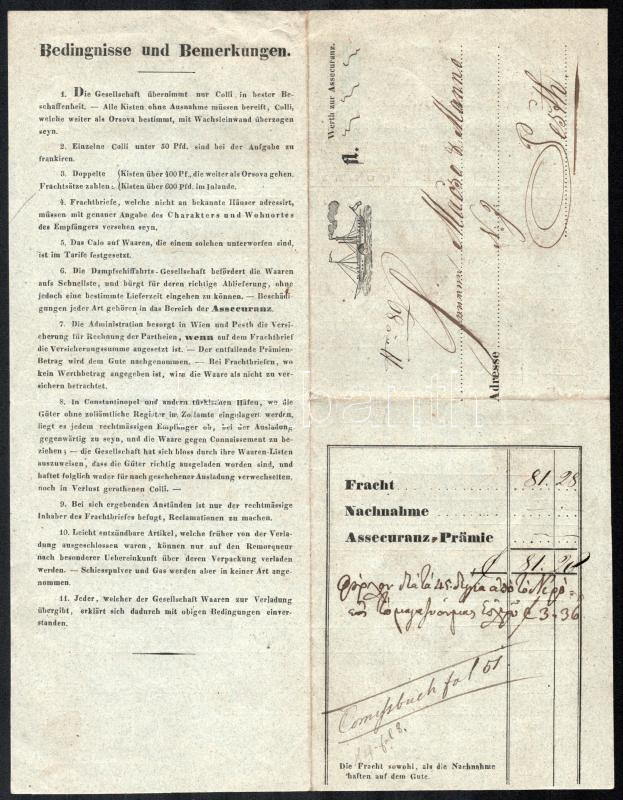 Bedingnisse und Bemerkungen.
1. Die Gesellschaft übernimmt nur Colli in bester Be-
schaffenheit. — Alle Kisten ohne Ausnahme müssen bereift, Colli,
welche weiter als Orsova bestimmt, mit Wachsleinwand überzogen
seyn.
2. Einzelne Colli unter 50 Pfd. sind bei der Aufgabe zu
frankiren.
3. Doppelte (Kisten über 400 Pf., die weiter als Orsova gehen.
Frachtsätze zahlen: (Kisten über 600 Pfd. im Inlande.
4. Frachtbriefe, welche nicht an bekannte Häuser adressirt,
müssen mit genauer Angabe des Charakters und Wohnortes
des Empfängers versehen seyn.
5. Das Calo auf Waaren, die einem solchen unterworfen sind,
ist im Tarife festgesetzt.
6. Die Dampfschiffahrts-Gesellschaft befördert die Waaren
aufs Schnellste, und bürgt für deren richtige Ablieferung, ohne
jedoch eine bestimmte Lieferzeit eingehen zu können. — Beschädi-
gungen jeder Art gehören in das Bereich der Assecuranz.
7. Die Administration besorgt in Wien und Pesth die Versi-
cherung für Rechnung der Partheien, wenn auf dem Frachtbrief
die Versicherungssumme angesetzt ist. — Der entfallende Prämien-
Betrag wird dem Gute nachgenommen. — Bei Frachtbriefen, wo
kein Werthbetrag angegeben ist, wird die Waare als nicht zu ver-
sichern betrachtet.
8. In Constantinopel und andern türkischen Häfen, wo die
Güter ohne zollämtliche Register im Zollamte eingelagert werden,
liegt es jedem rechtmässigen Empfänger ob, bei der Ausladung
gegenwärtig zu seyn, und die Waare gegen Connaissement zu be-
ziehen; — die Gesellschaft hat sich bloss durch ihre Waaren-Listen
auszuweisen, dass die Güter richtig ausgeladen worden sind, und
haftet folglich weder für nach geschehener Ausladung verwechselten,
noch in Verlust gerathenen Colli. —
9. Bei sich ergebenden Anständen ist nur der rechtmässige
Inhaber des Frachtbriefes befugt, Reclamationen zu machen.
10. Leicht entzündbare Artikel, welche früher von der Verla-
dung ausgeschlossen waren, können nur auf den Remorqueur
nach besonderer Uebereinkunft über deren Verpackung verladen
werden. — Schiesspulver und Gas werden aber in keiner Art ange-
nommen.
11. Jeder, welcher der Gesellschaft Waaren zur Verladung
übergibt, erklärt sich dadurch mit obigen Bedingungen einver-
standen.
Werth zur Assecuranz.
fl.
Adresse
Manno
No 9
Pesth
Fracht 81.28
Nachnahme
Assecuranz-Prämie
81.28
3-36
fol 51
Die Fracht sowohl, als die Nachnahme
haften auf dem Gute.